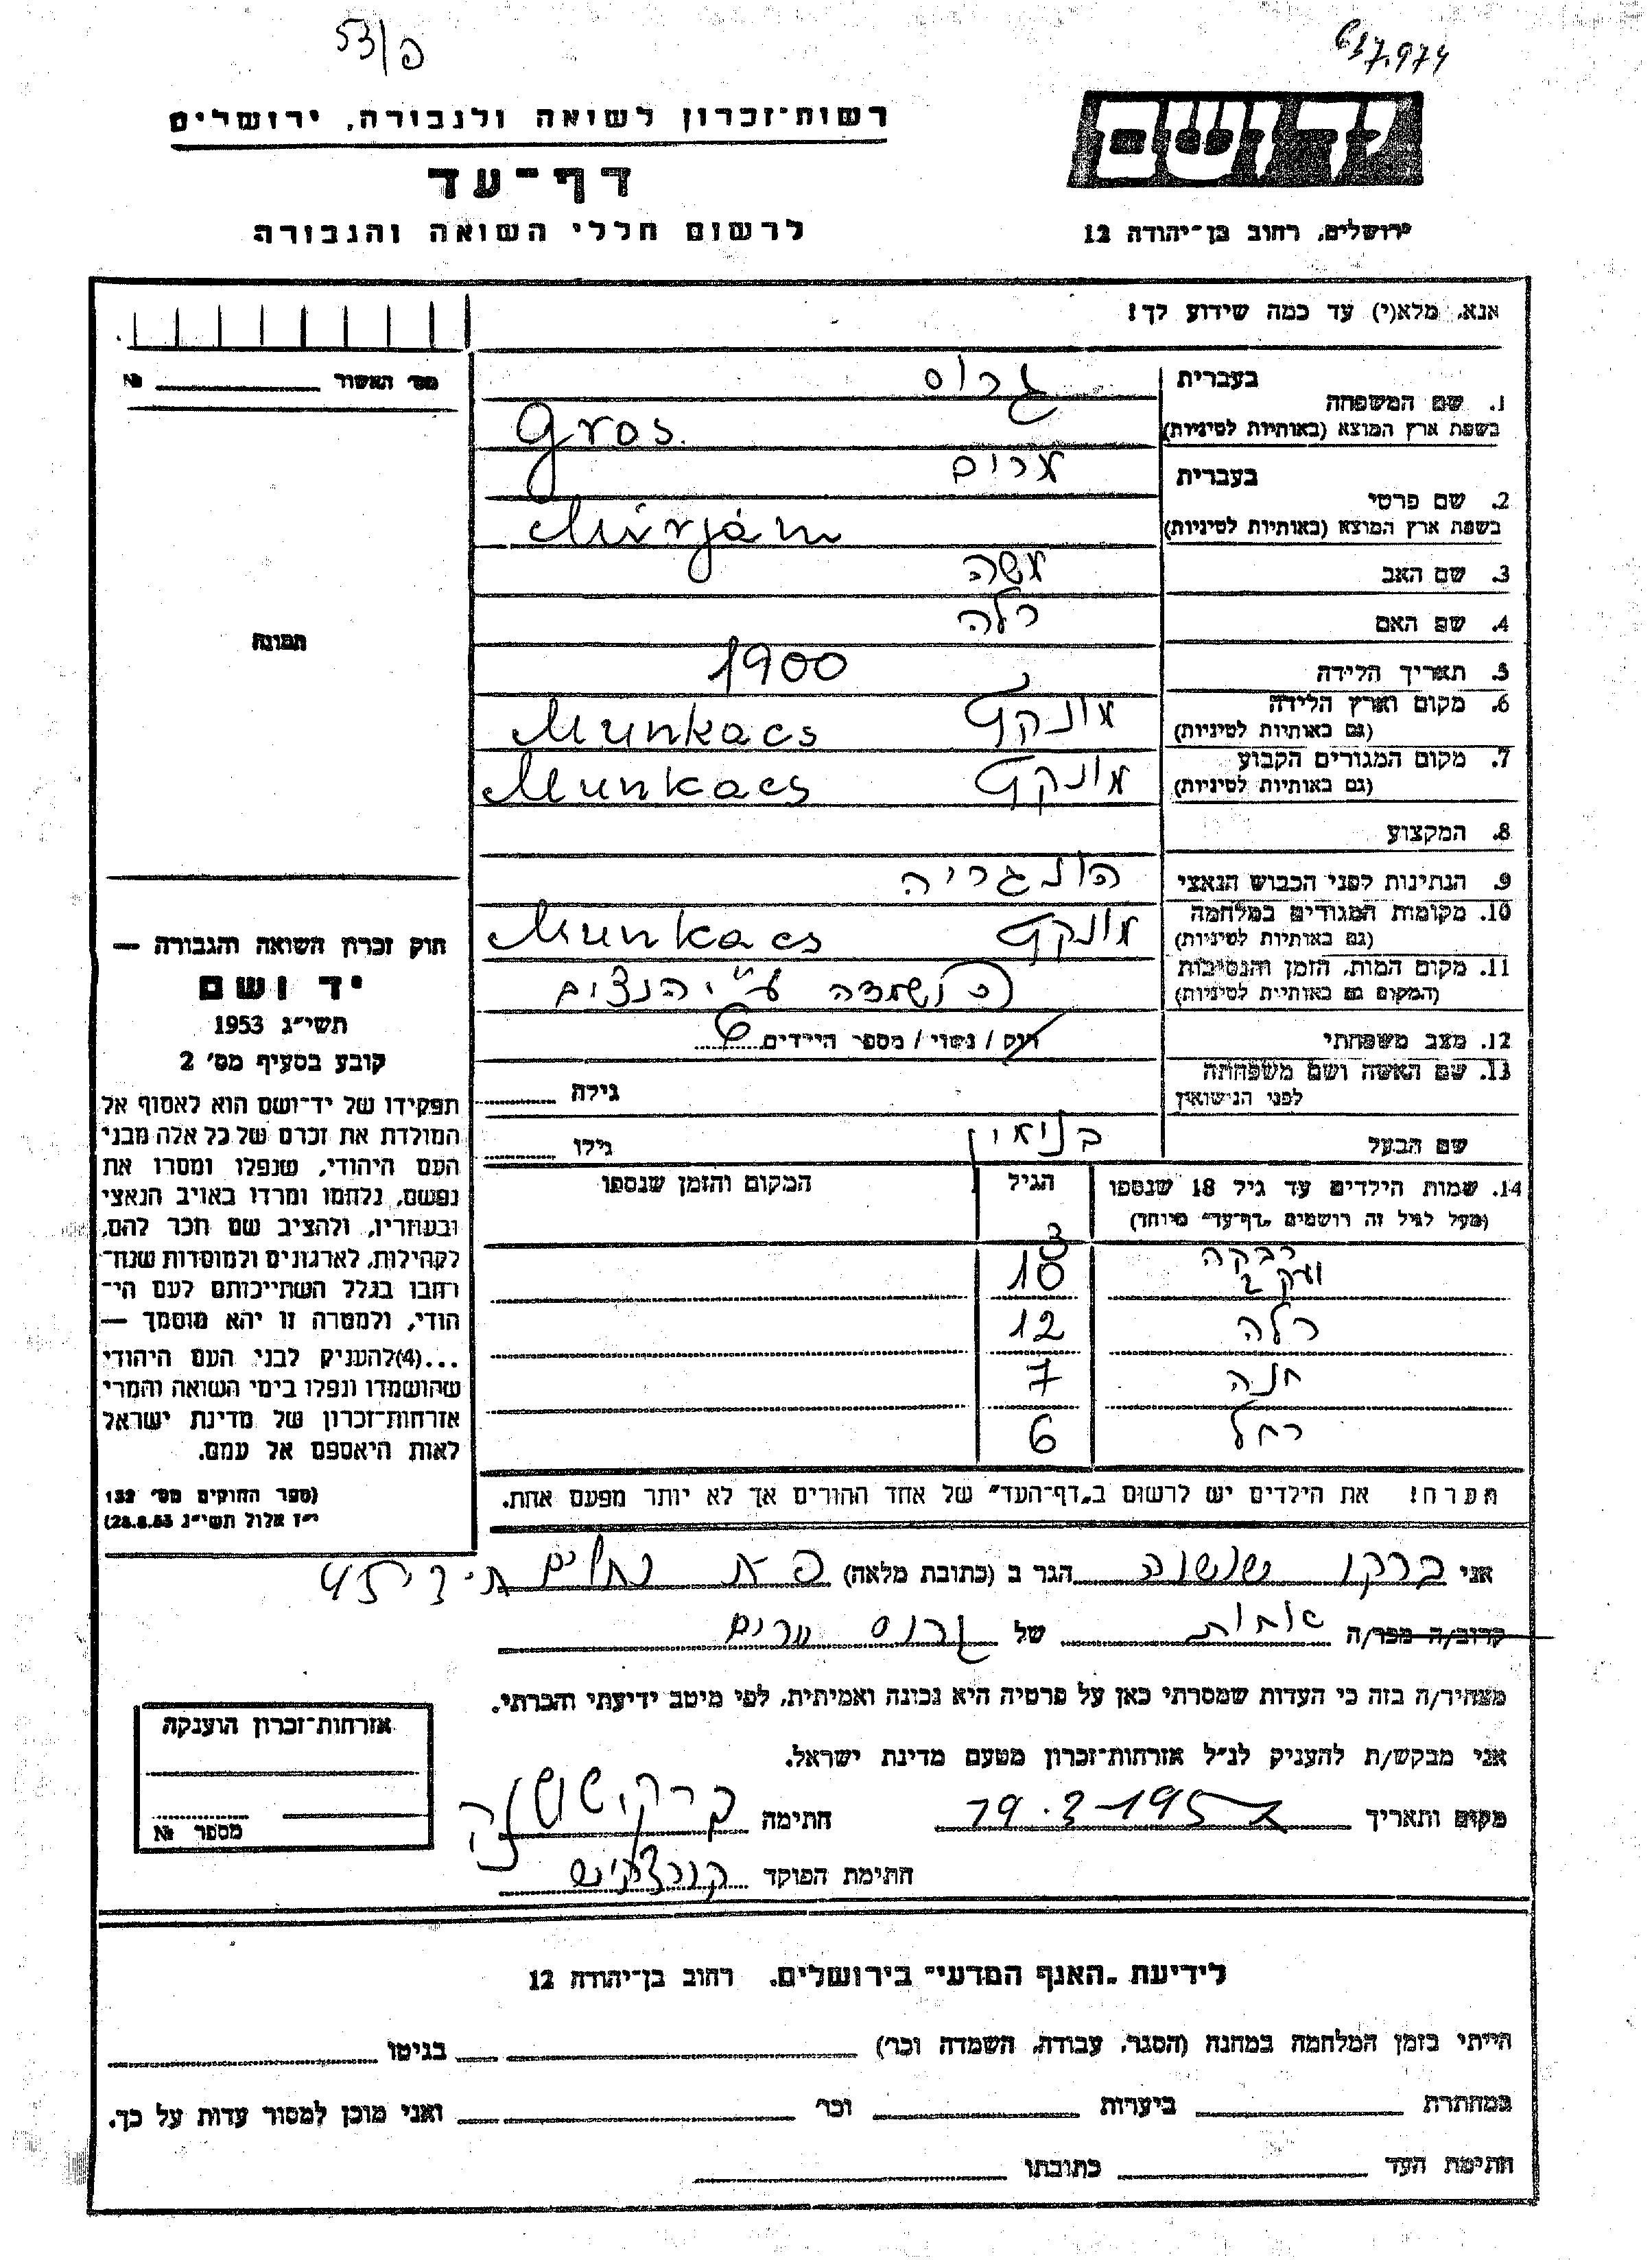 53/פ
617.974
רשות־זכרון לשואה ולגבורה, ירושלים
דף־עד
לרשום חללי השואה והגבורה
יד ושם
ירושלים, רחוב בן־יהודה 12
אנא, מלא(י) עד כמה שידוע לך!
מס׳ האשור № 
תמונה
1. שם המשפחה בעברית גרוס
בשפת ארץ המוצא (באותיות לטיניות) Gros.
2. שם פרטי בעברית מרים
בשפת ארץ המוצא (באותיות לטיניות) Mirjám
3. שם האב משה
4. שם האם רלה
5. תאריך הלידה 1900
6. מקום וארץ הלידה (גם באותיות לטיניות) מונקץ׳ Munkacs
7. מקום המגורים הקבוע (גם באותיות לטיניות) מונקץ Munkacs
8. המקצוע
9. הנתינות לפני הכבוש הנאצי הונגריה
10. מקומות המגורים במלחמה (גם באותיות לטיניות) מונקץ Munkacs
11. מקום המות, הזמן והנסיבות (המקום גם באותיות לטיניות) הושמדה ע״י הנצים
12. מצב משפחתי רווק / נשוי / מספר הילדים 6
13. שם האשה ושם משפחתה לפני הנישואין גילה
שם הבעל בנימין גילו
14. שמות הילדים עד גיל 18 שנספו הגיל המקום והזמן שנספו
(מעל לגיל זה רושמים „דף־עד״ מיוחד)
רבקה 3
יעקב 10
רלה 12
חנה 7
רחל 6
הערה! את הילדים יש לרשום ב„דף־העד״ של אחד ההורים אך לא יותר מפעם אחת.
חוק זכרון השואה והגבורה —
יד ושם
תשי״ג 1953
קובע בסעיף מס׳ 2
תפקידו של יד־ושם הוא לאסוף אל
המולדת את זכרם של כל אלה מבני
העם היהודי, שנפלו ומסרו את
נפשם, נלחמו ומרדו באויב הנאצי
ובעוזריו, ולהציב שם וזכר להם,
לקהילות, לארגונים ולמוסדות שנח־
רבו בגלל השתייכותם לעם הי־
הודי, ולמטרה זו יהא מוסמך —
...(4)להעניק לבני העם היהודי
שהושמדו ונפלו בימי השואה והמרי
אזרחות־זכרון של מדינת ישראל
לאות היאספם אל עמם.
(ספר החוקים מס׳ 132
י״ז אלול תשי״ג 28.8.53)
אני ברקו שושנה הגר ב (כתובת מלאה) פ״ת נחלים ת.ד. 45
קרוב/ה מכר/ה אחות של גרוס מרים
מצהיר/ה בזה כי העדות שמסרתי כאן על פרטיה היא נכונה ואמיתית, לפי מיטב ידיעתי והכרתי.
אני מבקש/ת להעניק לנ״ל אזרחות־זכרון מטעם מדינת ישראל.
מקום ותאריך חתימה ברקו שושנה
חתימת הפוקד
אזרחות־זכרון הוענקה
מספר №
לידיעת „האגף המדעי״ בירושלים. רחוב בן־יהודה 12
הייתי בזמן המלחמה במחנה (הסגר, עבודה, השמדה וכר׳) בגיטו
במחתרת ביערות וכר׳ ואני מוכן למסור עדות על כך.
חתימת העד כתובתו